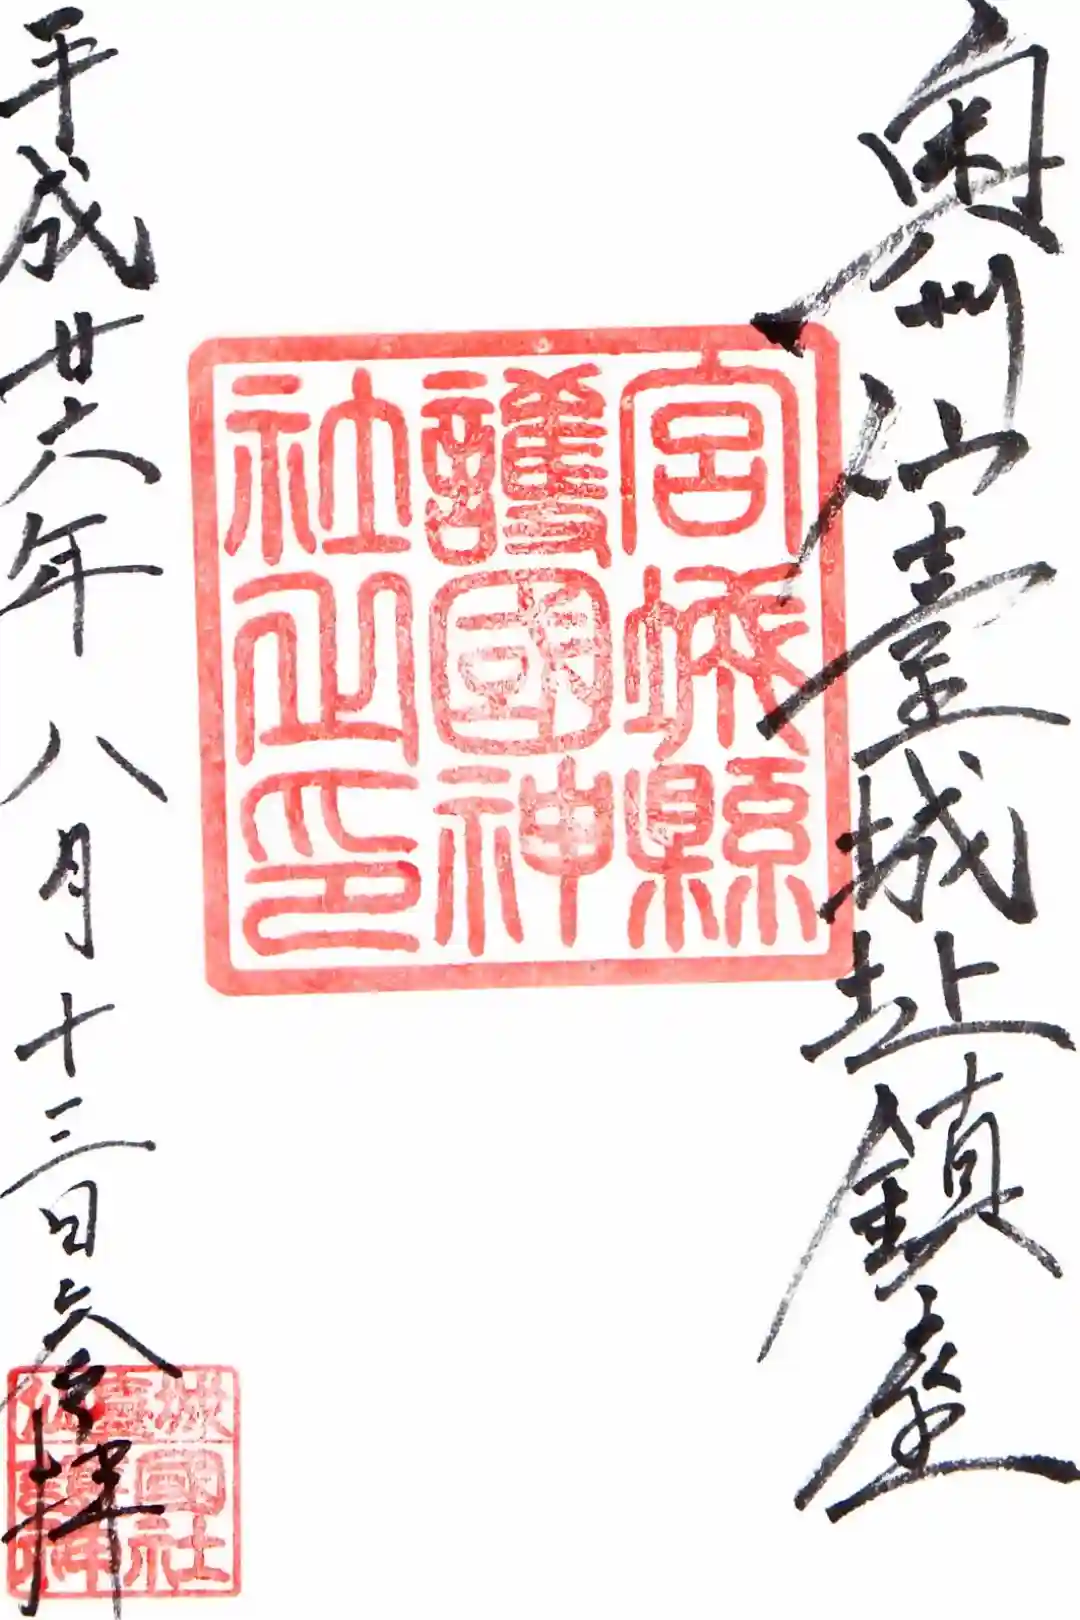 奥州仙臺城址鎮座
宮城縣
護國神
社之印
平成廿六年八月十三日参拝